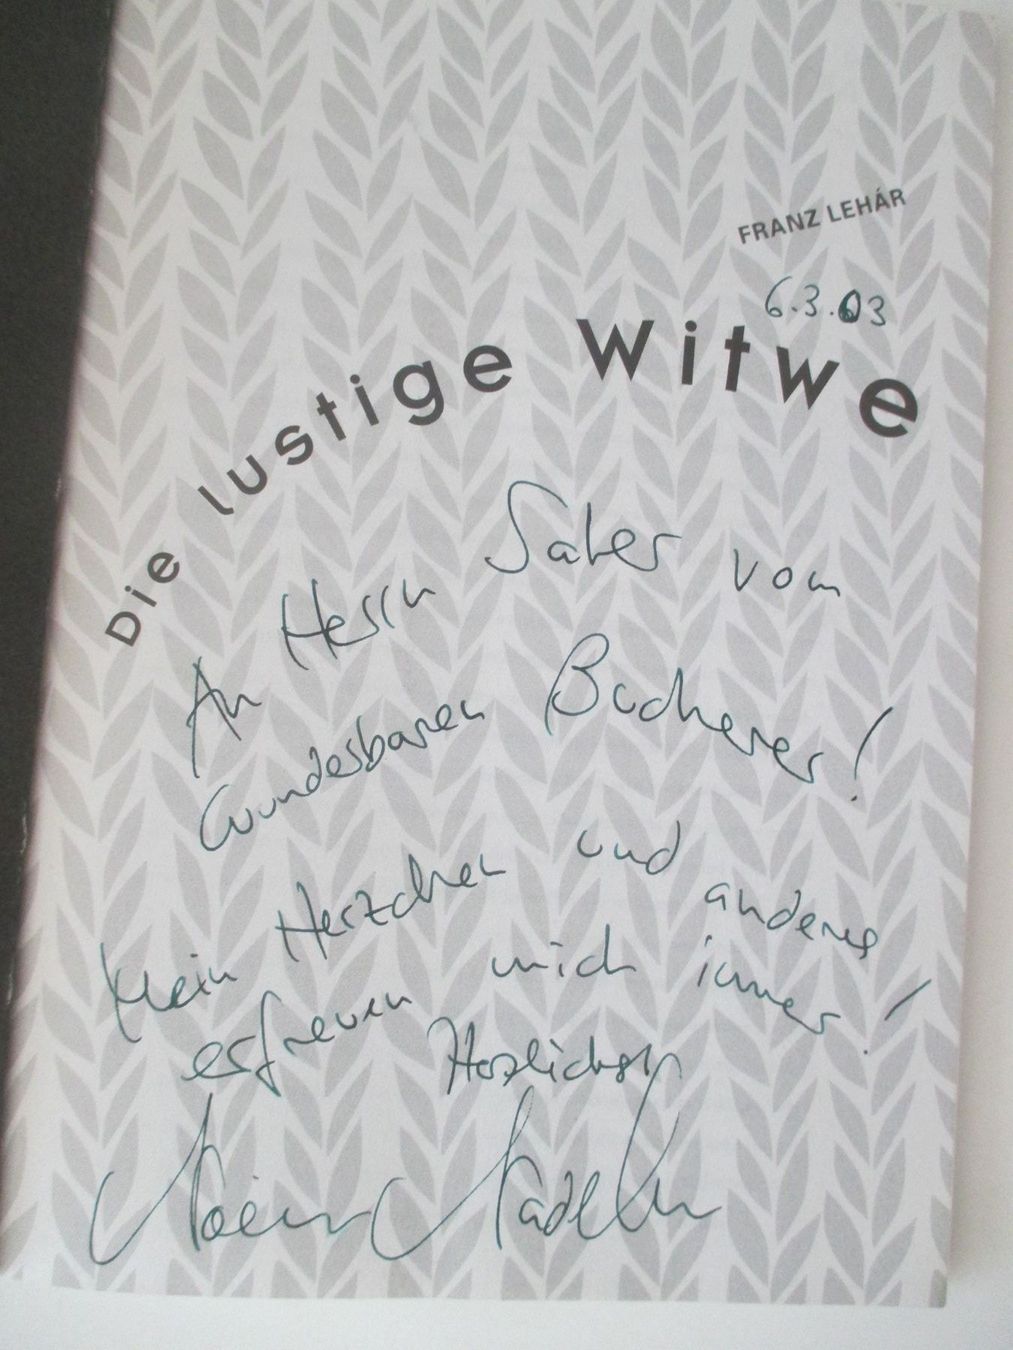 FRANZ LEHÁR
6.3.03
Die lustige Witwe
An Herrn Sater vom
wunderbaren Bucherer!
Mein Herzchen und anderes
erfreuen mich immer!
Herzlichst